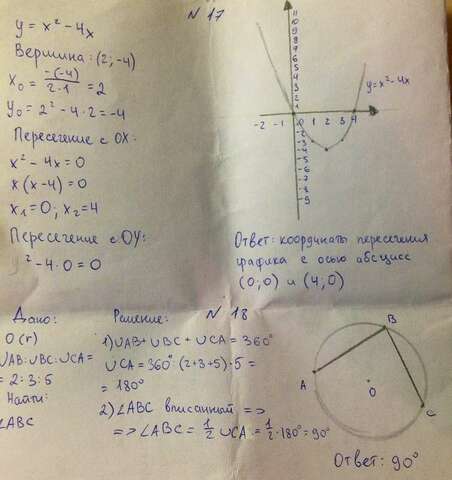 N 17
y = x² - 4x
Вершина: (2; -4)
x₀ = -(-4)/2·1 = 2
y₀ = 2² - 4·2 = -4
Пересегение с OX:
x² - 4x = 0
x(x-4) = 0
x₁ = 0, x₂ = 4
Пересегение с OY:
² - 4·0 = 0
11
10
9
8
7
6
5
4
3
2
1
y = x² - 4x
-2 -1 0 1 2 3 4
-1
-2
-3
-4
-5
-6
-7
-8
-9
Ответ: координаты пересегения
графика с осью абсцисс
(0;0) и (4;0)
N 18
Дано:
O(r)
∪AB:∪BC:∪CA=
= 2:3:5
Найти:
∠ABC
Решение:
1) ∪AB + ∪BC + ∪CA = 360°
∪CA = 360° : (2+3+5)·5 =
= 180°
2) ∠ABC вписанный =>
=> ∠ABC = 1/2 ∪CA = 1/2·180° = 90°
B
A
O
C
Ответ: 90°